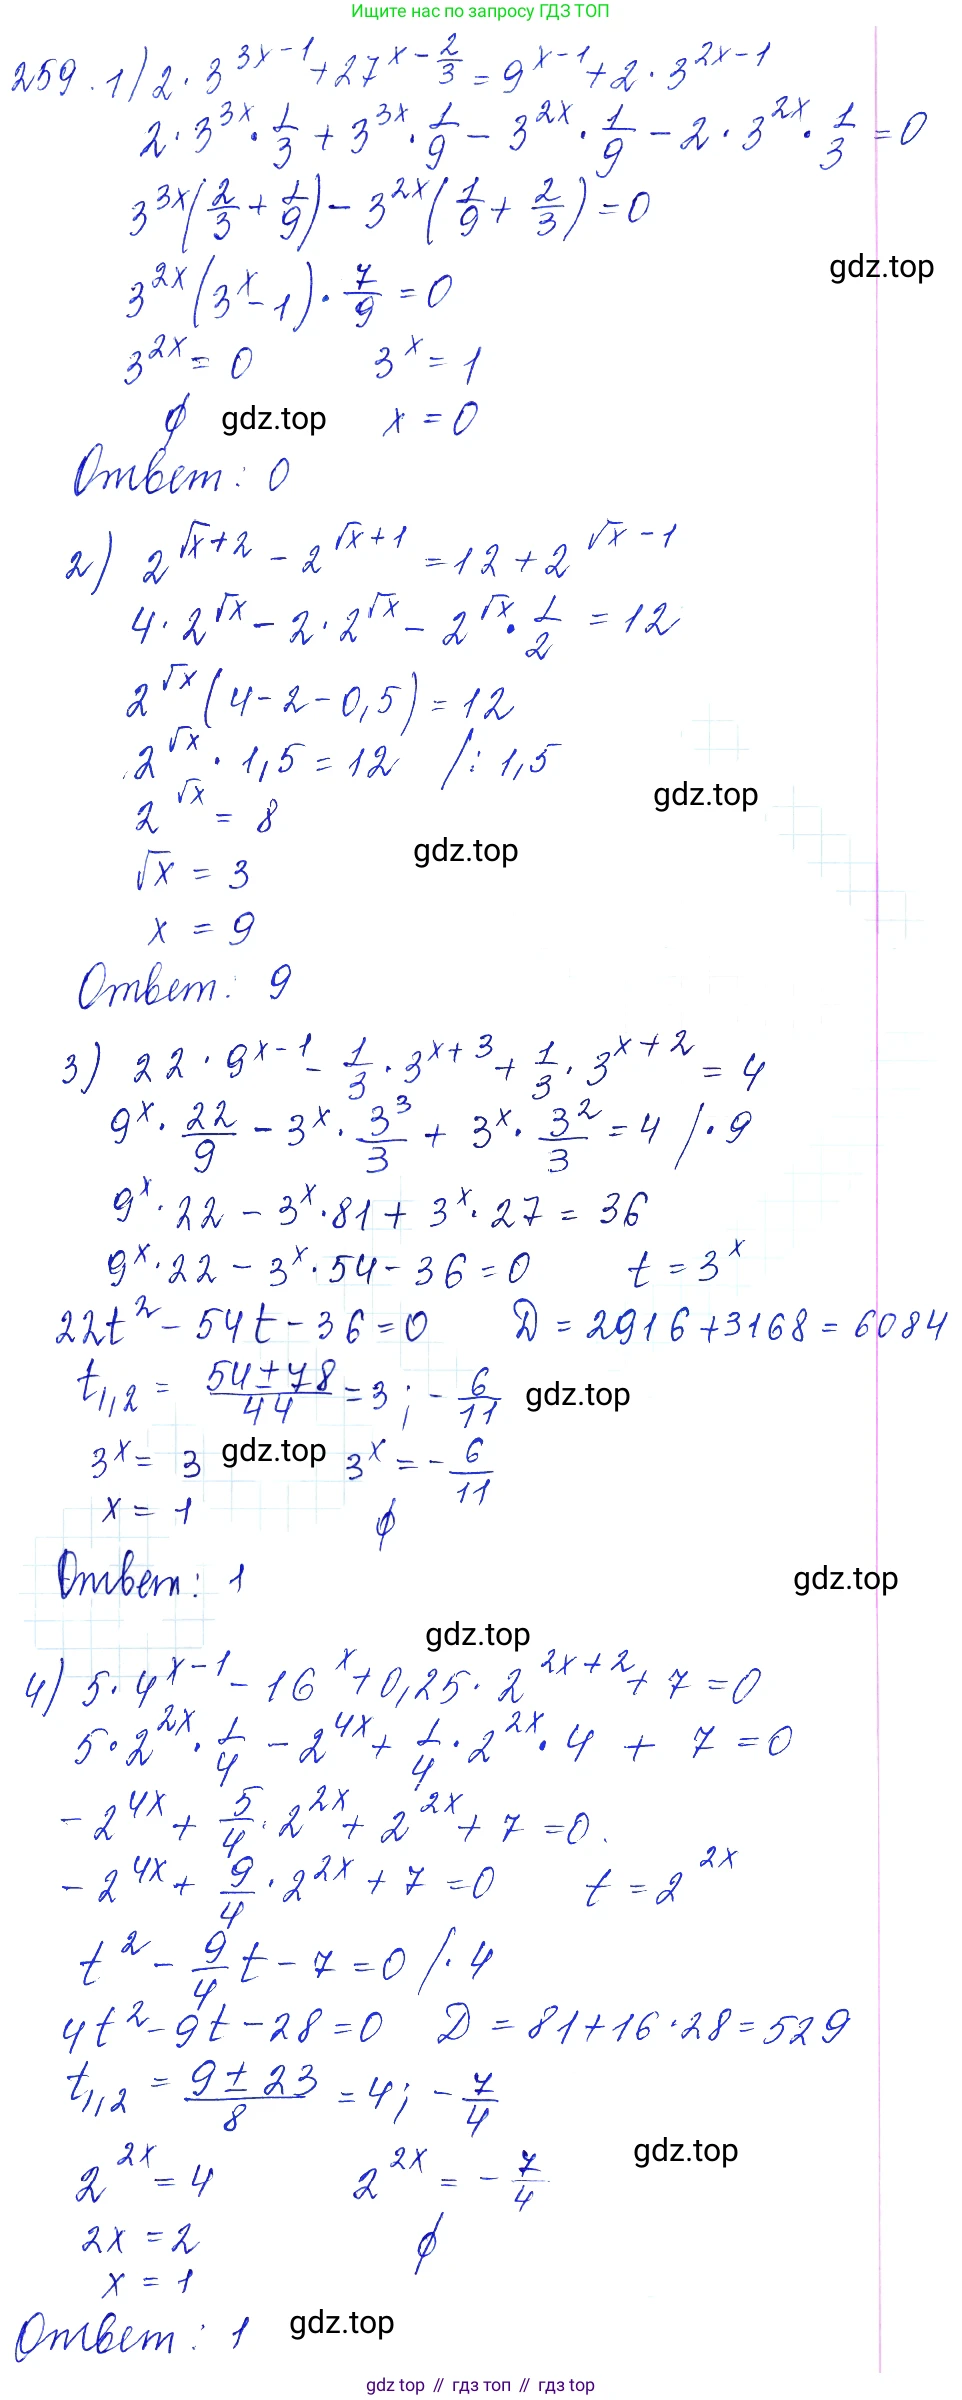 Ищите нас по запросу ГДЗ ТОП
259. 1) 2 · 3^(3x−1) + 27^(x − 2/3) = 9^(x−1) + 2 · 3^(2x−1)
2 · 3^(3x) · 1/3 + 3^(3x) · 1/9 − 3^(2x) · 1/9 − 2 · 3^(2x) · 1/3 = 0
3^(3x) (2/3 + 1/9) − 3^(2x) (1/9 + 2/3) = 0
gdz.top
3^(2x) (3^x − 1) · 7/9 = 0
3^(2x) = 0 3^x = 1
∅ gdz.top x = 0
Ответ: 0
2) 2^(√x+2) − 2^(√x+1) = 12 + 2^(√x−1)
4 · 2^(√x) − 2 · 2^(√x) − 2^(√x) · 1/2 = 12
2^(√x) (4 − 2 − 0,5) = 12
2^(√x) · 1,5 = 12 /: 1,5
gdz.top
2^(√x) = 8
gdz.top
√x = 3
x = 9
Ответ: 9
3) 22 · 9^(x−1) − 1/3 · 3^(x+3) + 1/3 · 3^(x+2) = 4
9^x · 22/9 − 3^x · 3^3/3 + 3^x · 3^2/3 = 4 /· 9
9^x · 22 − 3^x · 81 + 3^x · 27 = 36
9^x · 22 − 3^x · 54 − 36 = 0 t = 3^x
22t^2 − 54t − 36 = 0 D = 2916 + 3168 = 6084
t1,2 = (54 ± 78)/44 = 3 ; − 6/11 gdz.top
3^x = 3 gdz.top 3^x = − 6/11
x = 1 ∅
Ответ: 1
gdz.top
gdz.top
4) 5 · 4^(x−1) − 16^x + 0,25 · 2^(2x+2) + 7 = 0
5 · 2^(2x) · 1/4 − 2^(4x) + 1/4 · 2^(2x) · 4 + 7 = 0
− 2^(4x) + 5/4 · 2^(2x) + 2^(2x) + 7 = 0.
− 2^(4x) + 9/4 · 2^(2x) + 7 = 0 t = 2^(2x)
t^2 − 9/4 t − 7 = 0 /· 4
4t^2 − 9t − 28 = 0 D = 81 + 16 · 28 = 529
t1,2 = (9 ± 23)/8 = 4; − 7/4
gdz.top
2^(2x) = 4 2^(2x) = − 7/4
2x = 2 ∅
x = 1
Ответ: 1 gdz.top
gdz top // гдз топ // гдз top